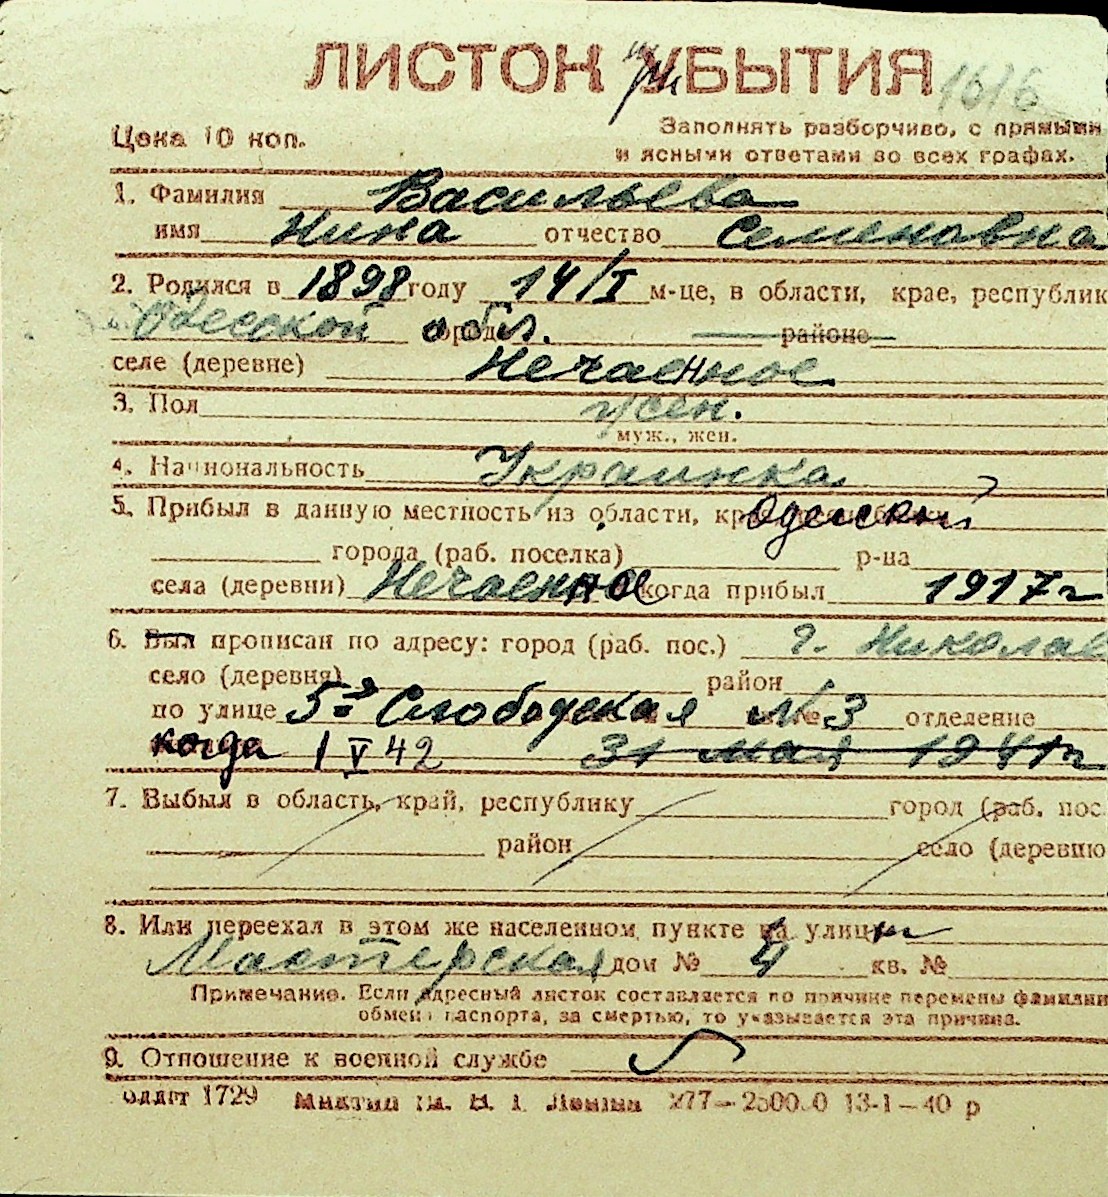 ЛИСТОК УБЫТИЯ 1616
Цена 10 коп. Заполнять разборчиво, с прямыми
и ясными ответами во всех графах.
1. Фамилия Васильева
имя Нина отчество Семеновна
2. Родился в 1898 году 14/I м-це, в области, крае, республик
Одесской обл. районе
селе (деревне) Нечаенное
3. Пол жен.
муж., жен.
4. Национальность Украинка
5. Прибыл в данную местность из области, Одесской
города (раб. поселка) р-на
села (деревни) Нечаенное когда прибыл 1917 г
6. Был прописан по адресу: город (раб. пос.) г. Николаев
село (деревня) район
по улице 5-я Слободская № 3 отделение
когда 1 V 42 31 мая 1941 г
7. Выбыл в область, край, республику город (раб. пос.
район село (деревню
8. Или переехал в этом же населенном пункте на улицу
Мастерская дом № 4 кв. №
Примечание. Если адресный листок составляется по причине перемены фамилии
обмена паспорта, за смертью, то указывается эта причина.
9. Отношение к военной службе
1729 им. В. И. Ленина 277—2500.0 13-1—40 р